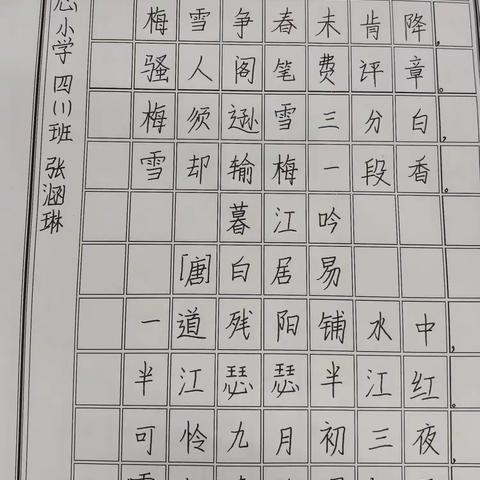 小学 四(1)班 张涵琳
梅雪争春未肯降,
骚人阁笔费评章。
梅须逊雪三分白,
雪却输梅一段香。
暮江吟
[唐]白居易
一道残阳铺水中,
半江瑟瑟半江红。
可怜九月初三夜,